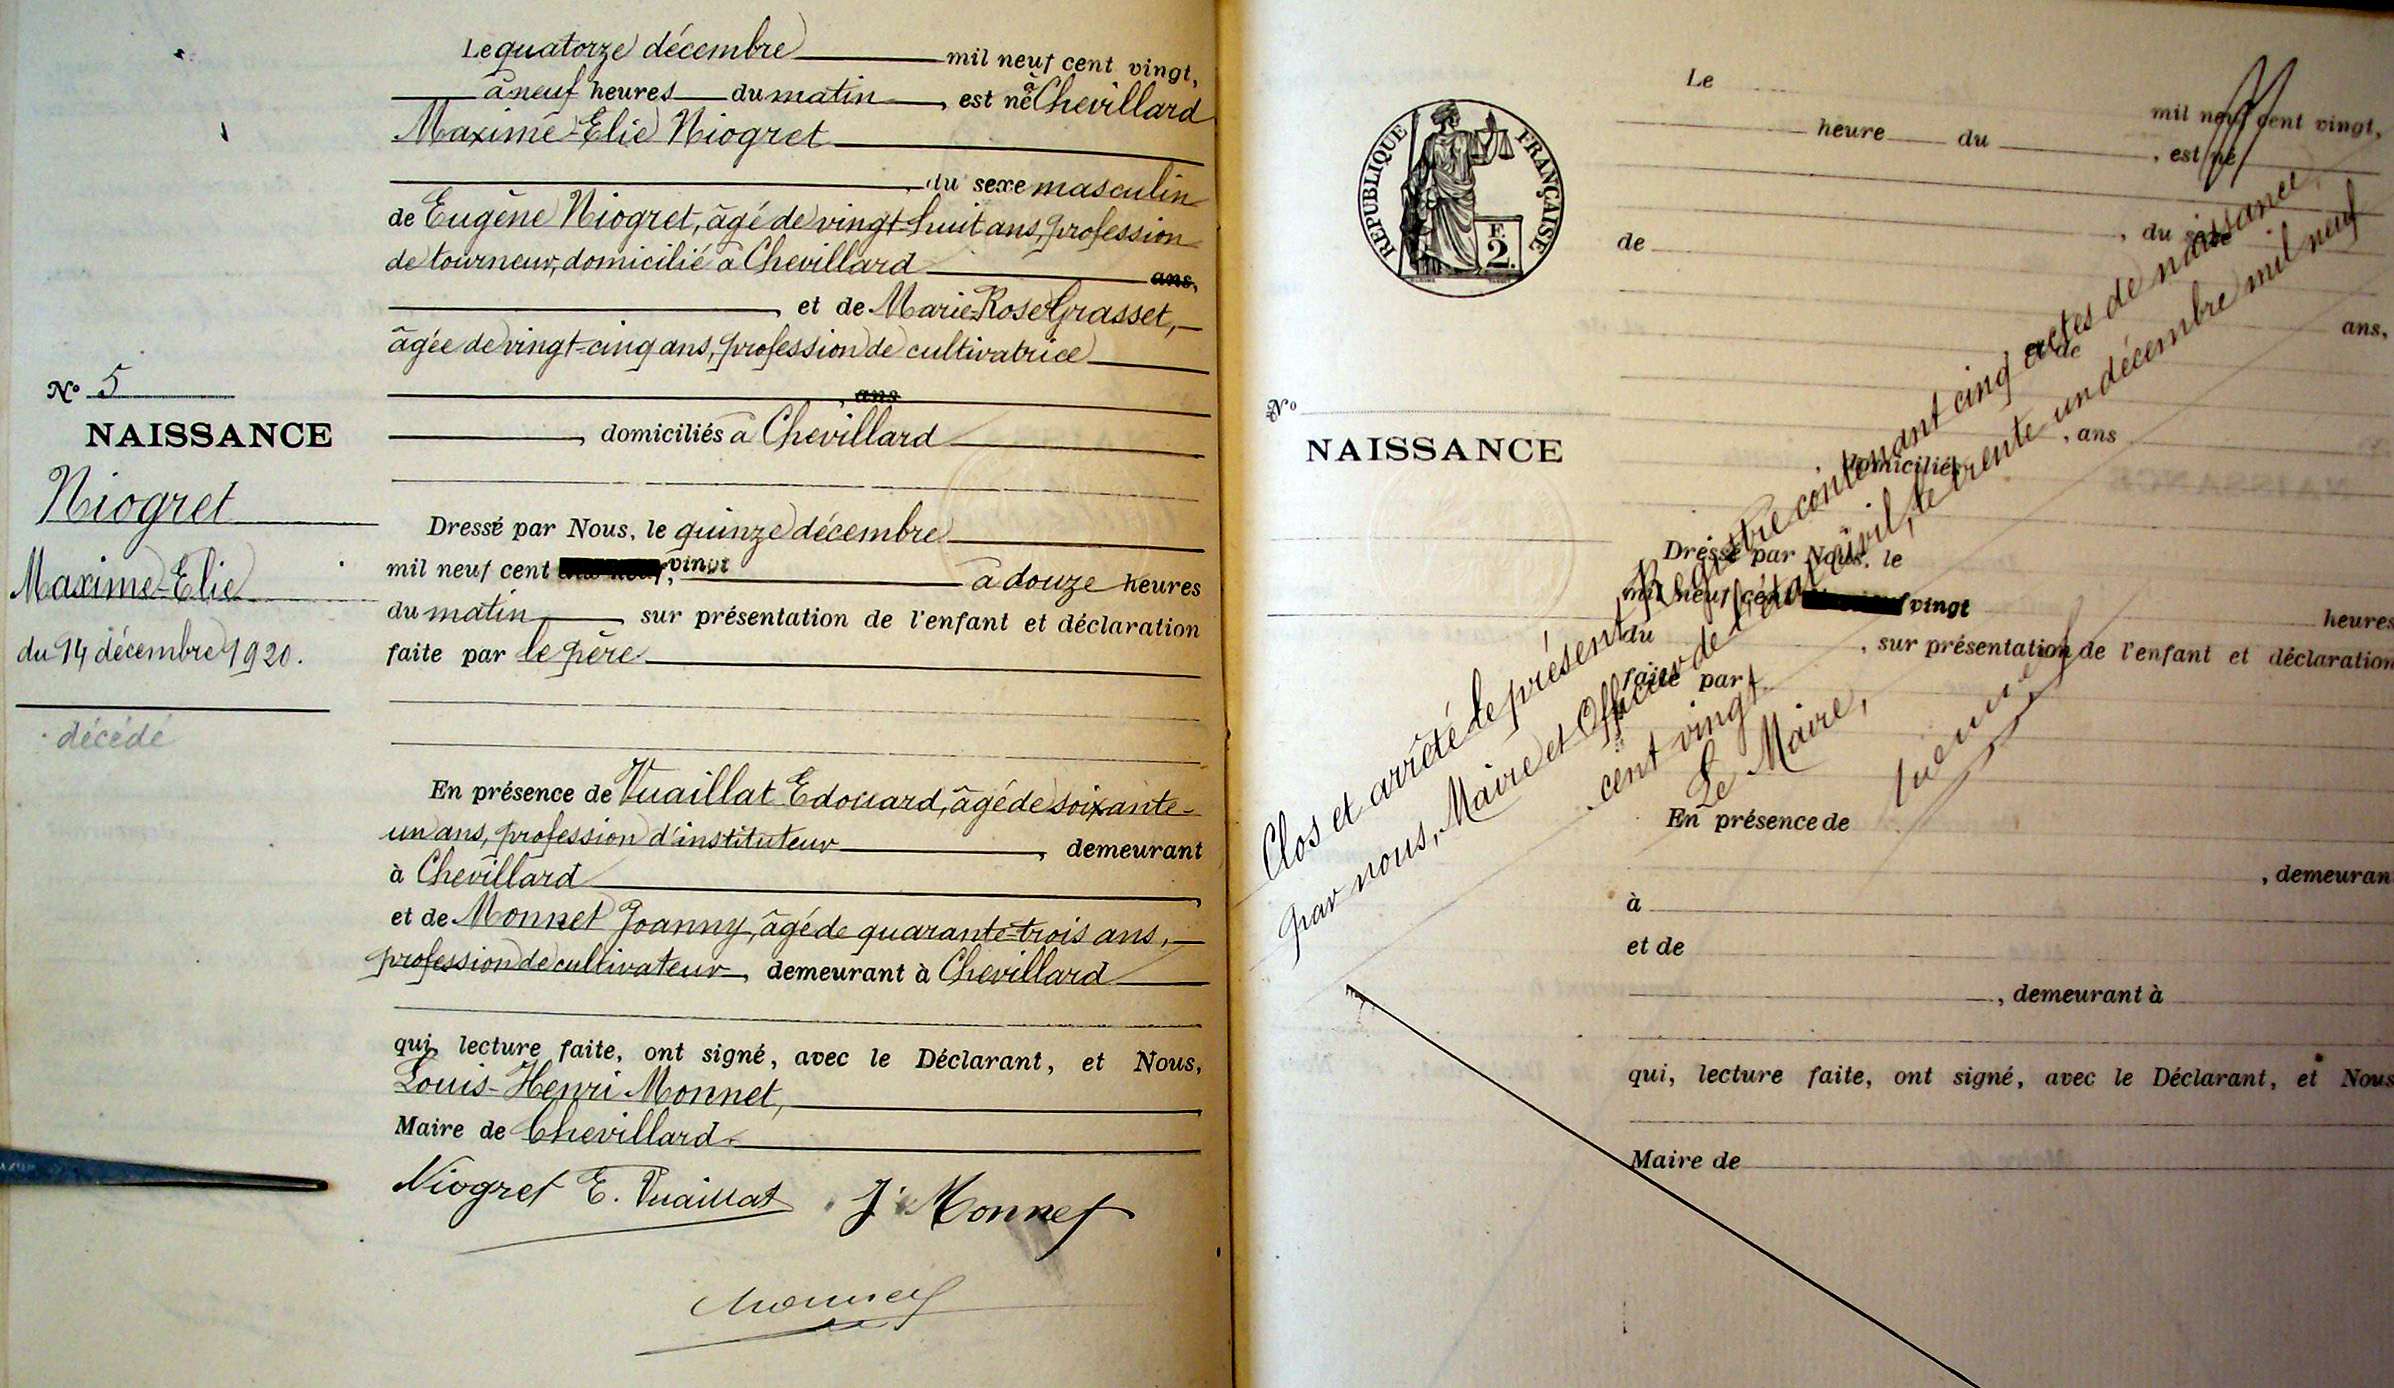 Le quatorze décembre mil neuf cent vingt,
à neuf heures du matin, est né à Chevillard
Maxime-Elie Niogret
du sexe masculin
de Eugène Niogret, âgé de vingt-huit ans, profession
de tourneur, domicilié à Chevillard ans,
, et de Marie-Rose Grasset,
âgée de vingt-cinq ans, profession de cultivatrice
, ans
, domiciliés à Chevillard
Nº 5
NAISSANCE
Niogret
Maxime-Elie
du 14 décembre 1920.
décédé
Dressé par Nous, le quinze décembre
mil neuf cent vingt à douze heures
du matin, sur présentation de l'enfant et déclaration
faite par le père
En présence de Vuaillat Edouard, âgé de soixante-
un ans, profession d'instituteur, demeurant
à Chevillard
et de Monnet Joanny, âgé de quarante-trois ans,
profession de cultivateur, demeurant à Chevillard
qui, lecture faite, ont signé, avec le Déclarant, et Nous,
Louis-Henri Monnet,
Maire de Chevillard.
Niogret E. Vuaillat J. Monnet
Monnet
RÉPUBLIQUE FRANÇAISE
F.
2.
Le mil neuf cent vingt,
heure du , est né
, du sexe
de
ans,
et de
, ans
, domiciliés
Nº
NAISSANCE
Dressé par Nous, le
mil neuf cent vingt heures
du , sur présentation de l'enfant et déclaration
faite par
En présence de
, demeuran
à
et de
, demeurant à
qui, lecture faite, ont signé, avec le Déclarant, et Nous
Maire de
Clos et arrêté le présent Registre contenant cinq actes de naissance,
par nous, Maire et Officier de l'état civil, le trente-un décembre mil neuf
cent vingt.
Le Maire,
Monnet